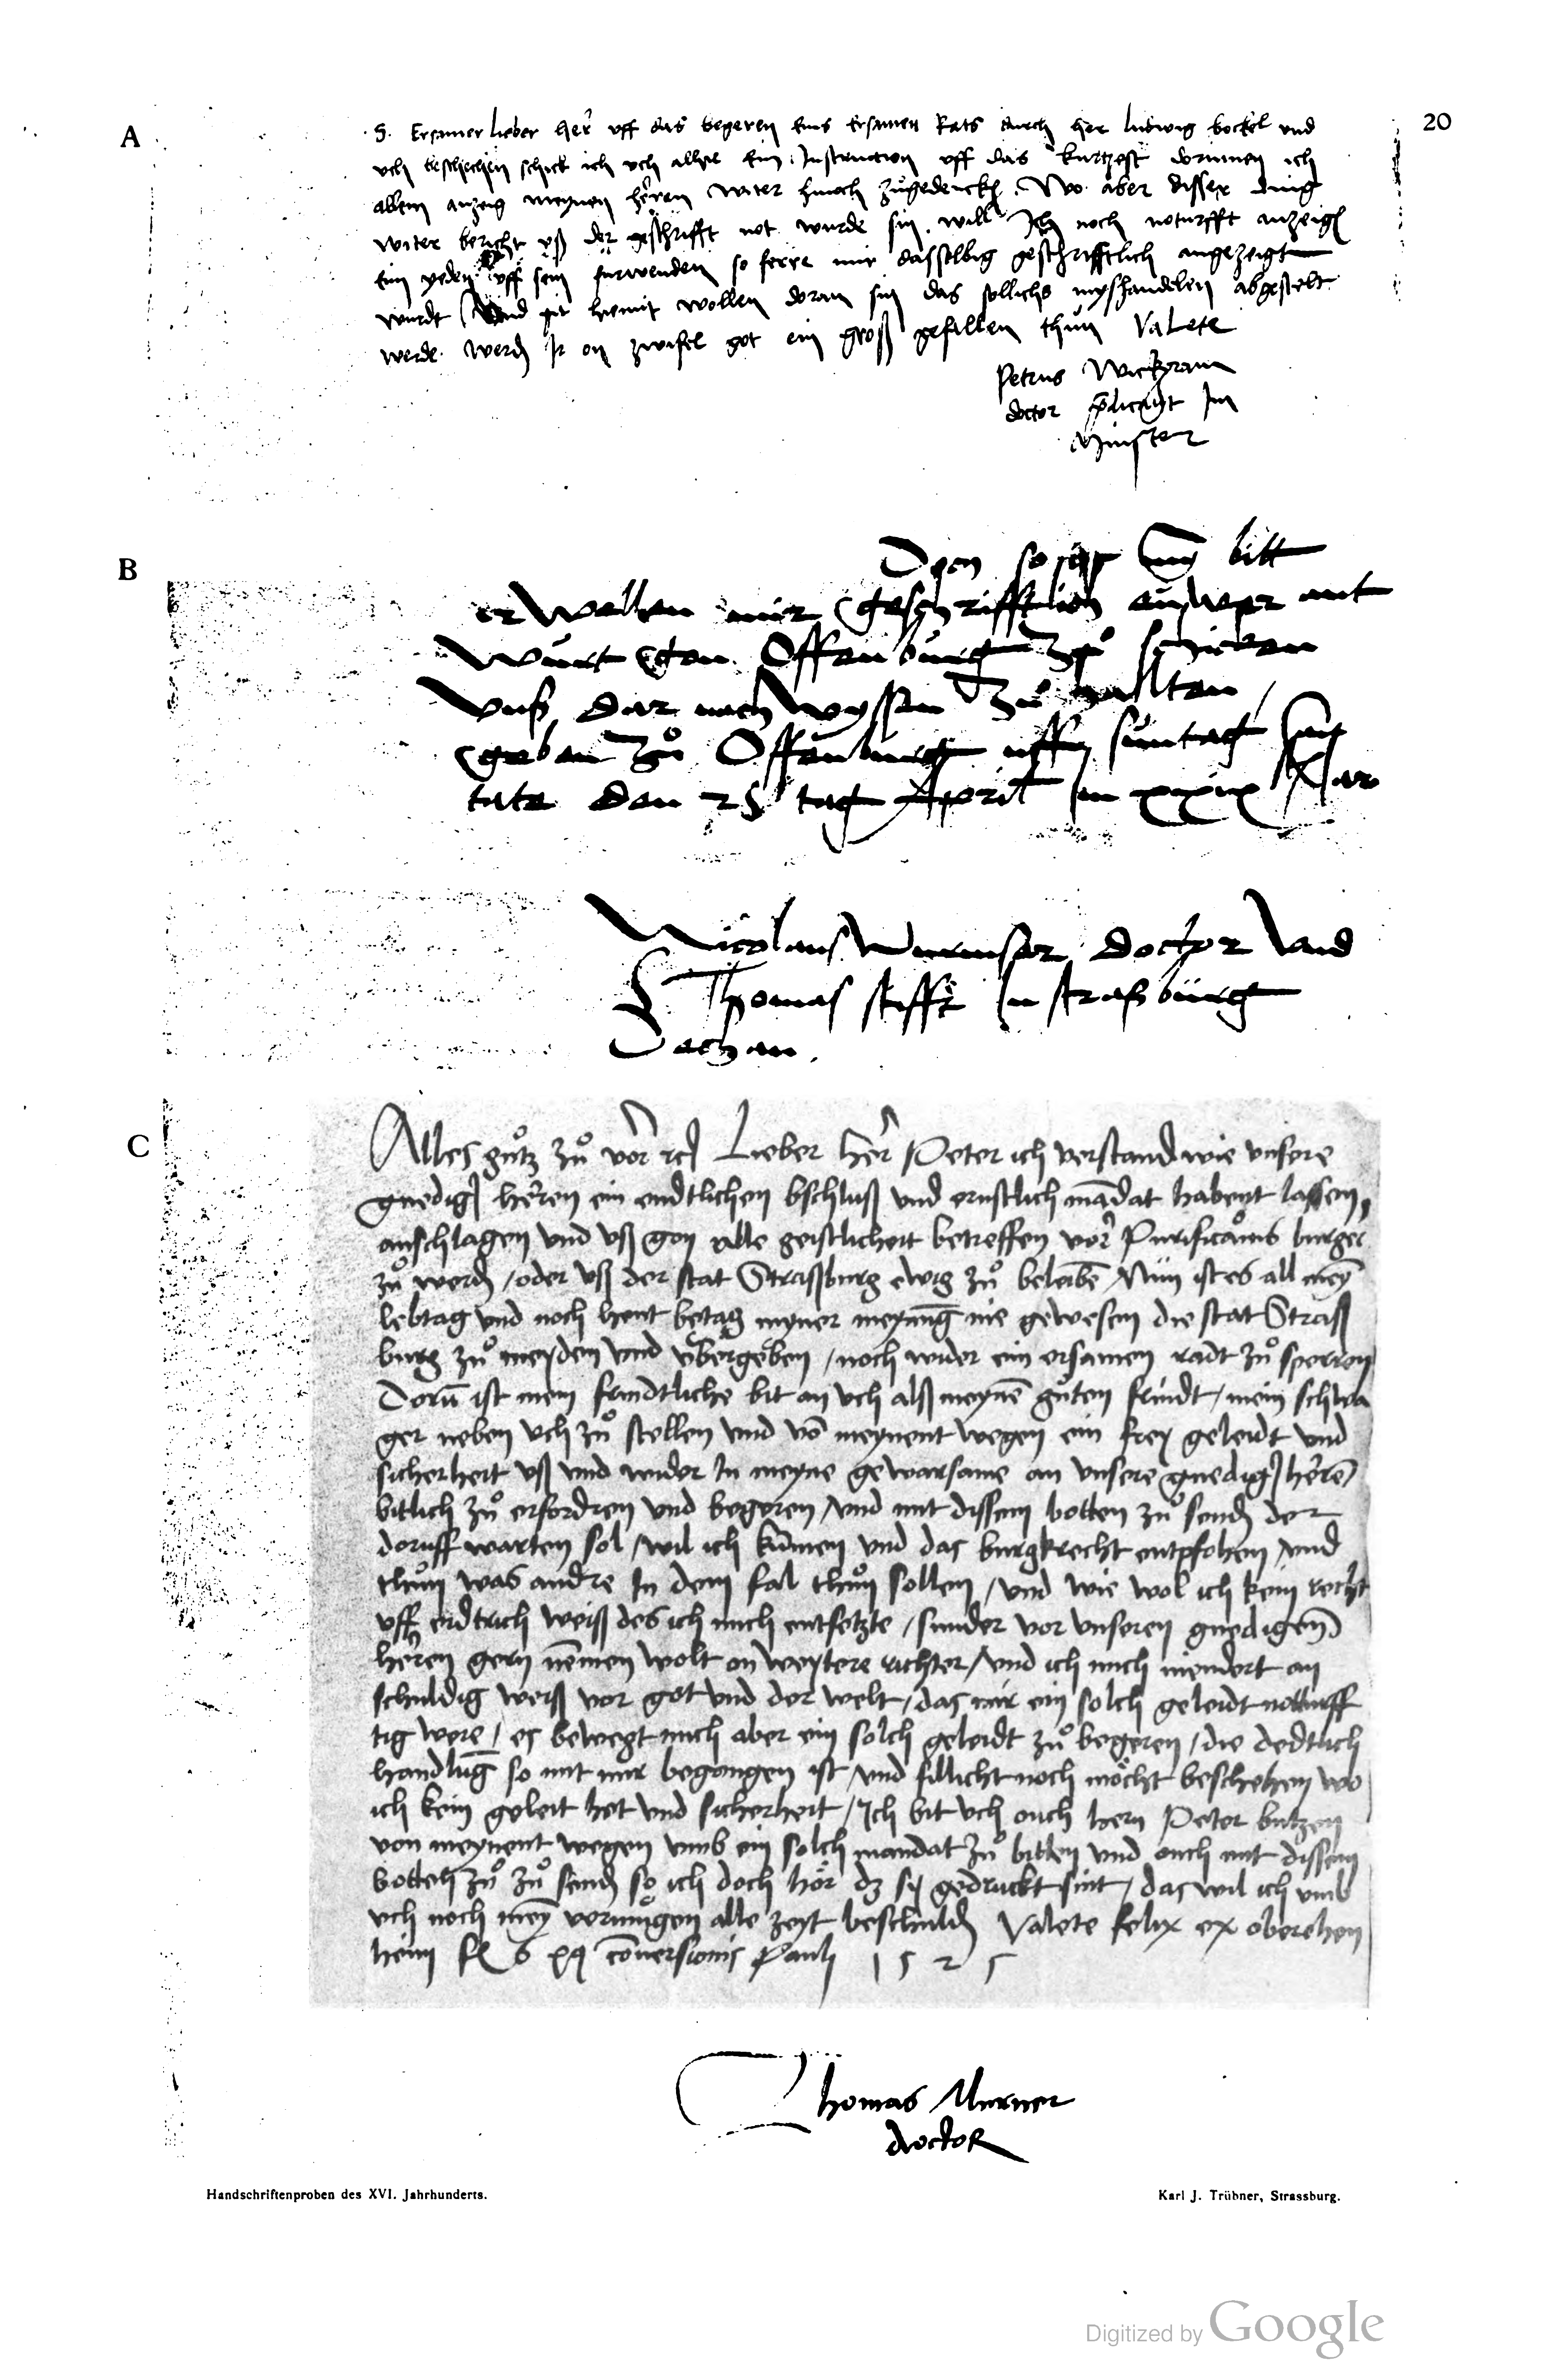 A
20
S. Ersamer lieber her uff das begeren eins ersamen Rats durch her ludwig bockel und
uch beschehen schick ich uch alhie ein Instruction uff das kurtzest dorinnen ich
allein anzeig meynen herren witer hinoch zugedencken. Wo aber disser ding
witer bericht uß der geschrifft not wurde sin, will Ich noch noturfft anzeigen
Eim yeden uff sein furwenden so ferre mir dasselbig geschrifftlich angezeigt
wurdt Und hiemit wollen doran sin das sollichs myshandelen abgestelt
werde werden Ir on zwifel got ein groß gefallen thun Valete
Petrus Wickgram
doctor predicant Im
Minster
B
bitt
er wellen mir geschrifftlich euwer ant
wurt gen Offenburg zů schicken
unß dar nach wyssen zů halten /
geben zů Offenburg uff suntag
tate den 25 tag April In xxix Jar
Nicolaus Wurmser doctor und
S Thomas stifft In straßburg
Dechan.
C
Alles gůtz zů vor Lieber her Peter ich verstand wie unsere
gnedig herren ein endtlichen bschluß und ernstlich madat habent lassen,
anschlagen und uß gon alle geistlicheit betreffen vor burger
zů werden / oder uß der stat Straßburg ewig zů beleibē Nun ist es all mey
lebtag und noch heut betag myner meynūg nie gewesen die stat Straß
burg zů meyden und übergeben / noch wider ein ersamen radt zů sperren
Dorū ist mein frindtliche bit an uch alß meynē gůten frindt / mein schwa
ger neben uch zů stellen und vō meynent wegen ein frey geleidt und
sicherheit uß und wider In meyne gewarsame an unsere gnedig herrē
bitlich zů erfordren und begeren / und mit dissem botten zů senden der
doruff warten sol / wil ich kūmen und das burgkrecht entpfohen / und
thůn was andre In dem fal thůn sollen / und wie wol ich kein recht
uff erdtrich weiß des ich mich entsetzte / sunder vor unseren gnedigen
herren gern nēmen wolt on weytere richter / und ich mich niendert an
schuldig weiß vor got und der welt / das mir ein solch geleidt notturff
tig were / es bewegt mich aber ein solch geleidt zů begeren / die dedtlich
handlūg so mit mir begangen ist / und fillicht noch möcht beschehen wo
ich kein geleit het und sicherheit / Ich bit uch ouch hern Peter butzen
von meynent wegen umb ein solch mandat zů bitten und ouch mit dissem
botten zů zů senden so ich doch hör dz sy gedruckt sint / das wil ich umb
uch noch mey vermügen alle zeyt beschulden Valete felix ex oberehen
heim cōversionis Pauli 1525
Thomas Murner
doctor
Handschriftenproben des XVI. Jahrhunderts.
Karl J. Trübner, Strassburg.
Digitized by Google